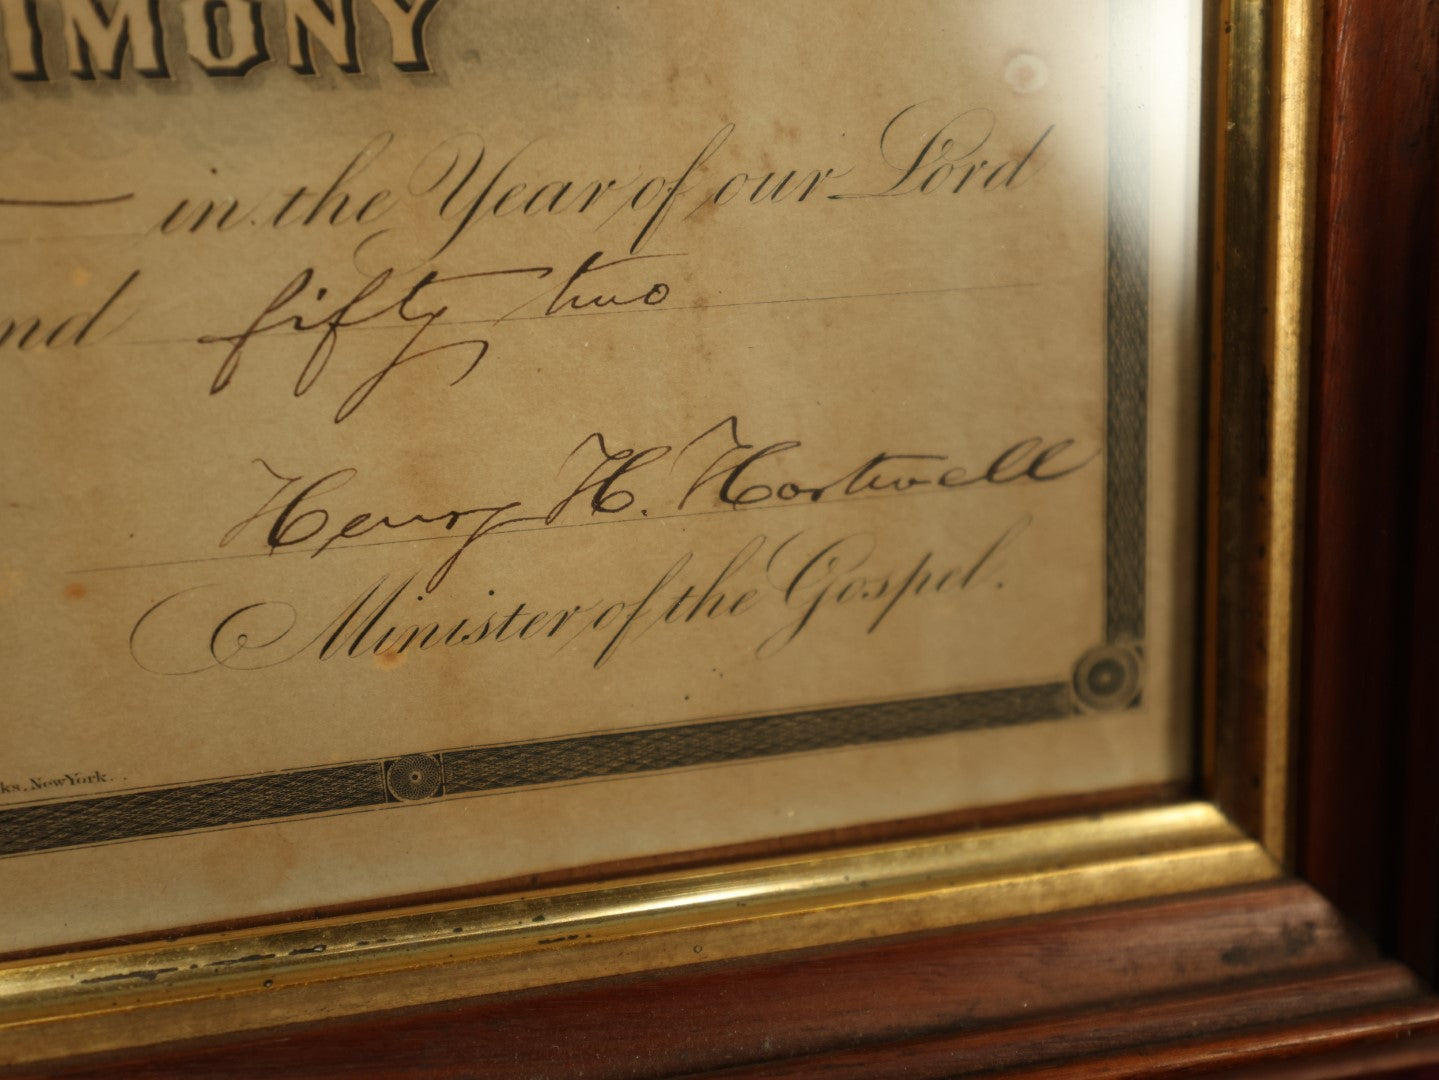 IMONY
in the Year of our Lord
nd fifty two
Henry H. Hartwell
Minister of the Gospel.
ks, New York.